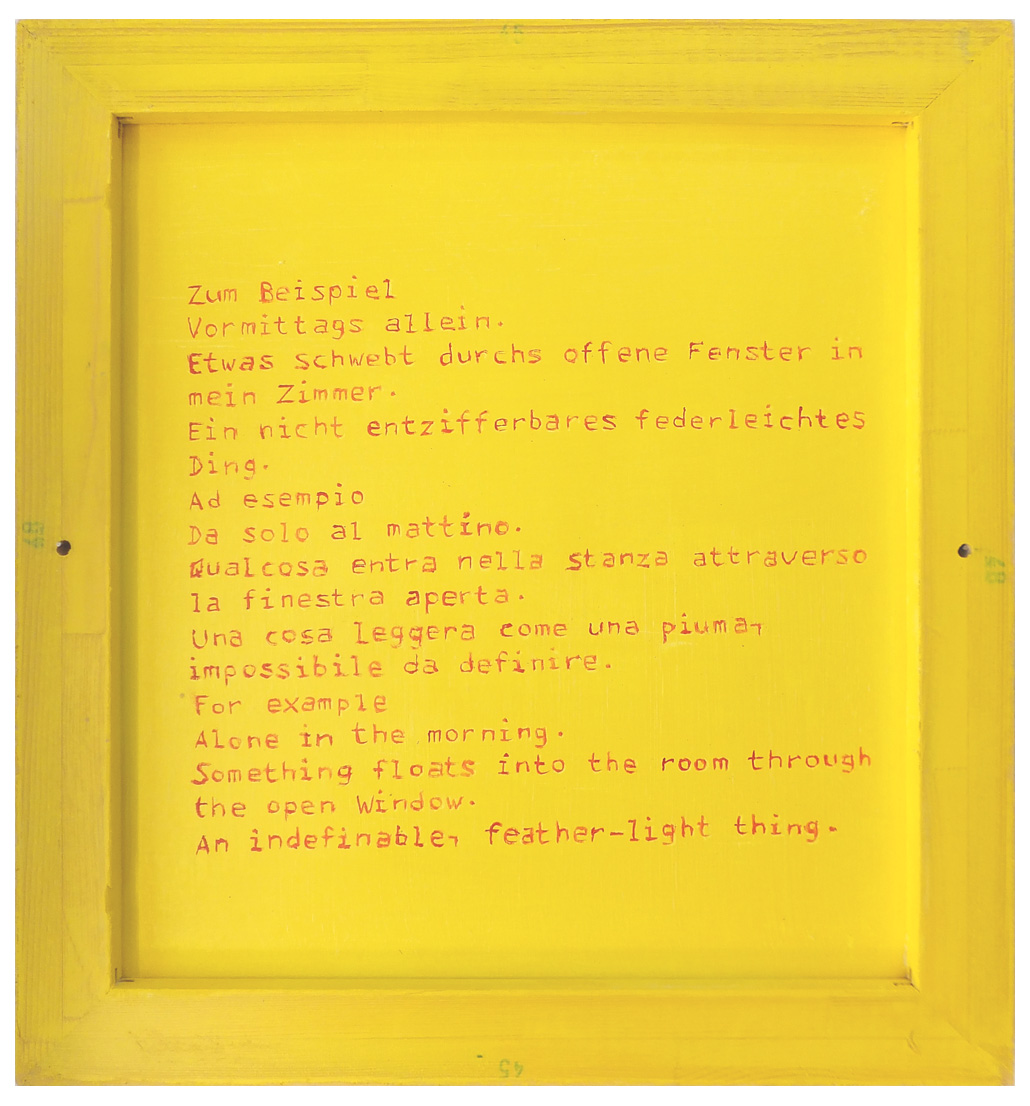 45
Zum Beispiel
Vormittags allein.
Etwas schwebt durchs offene Fenster in
mein Zimmer.
Ein nicht entzifferbares federleichtes
Ding.
Ad esempio
Da solo al mattino.
Qualcosa entra nella stanza attraverso
la finestra aperta.
Una cosa leggera come una piuma,
impossibile da definire.
For example
Alone in the morning.
Something floats into the room through
the open window.
An indefinable, feather-light thing.
48
48
45